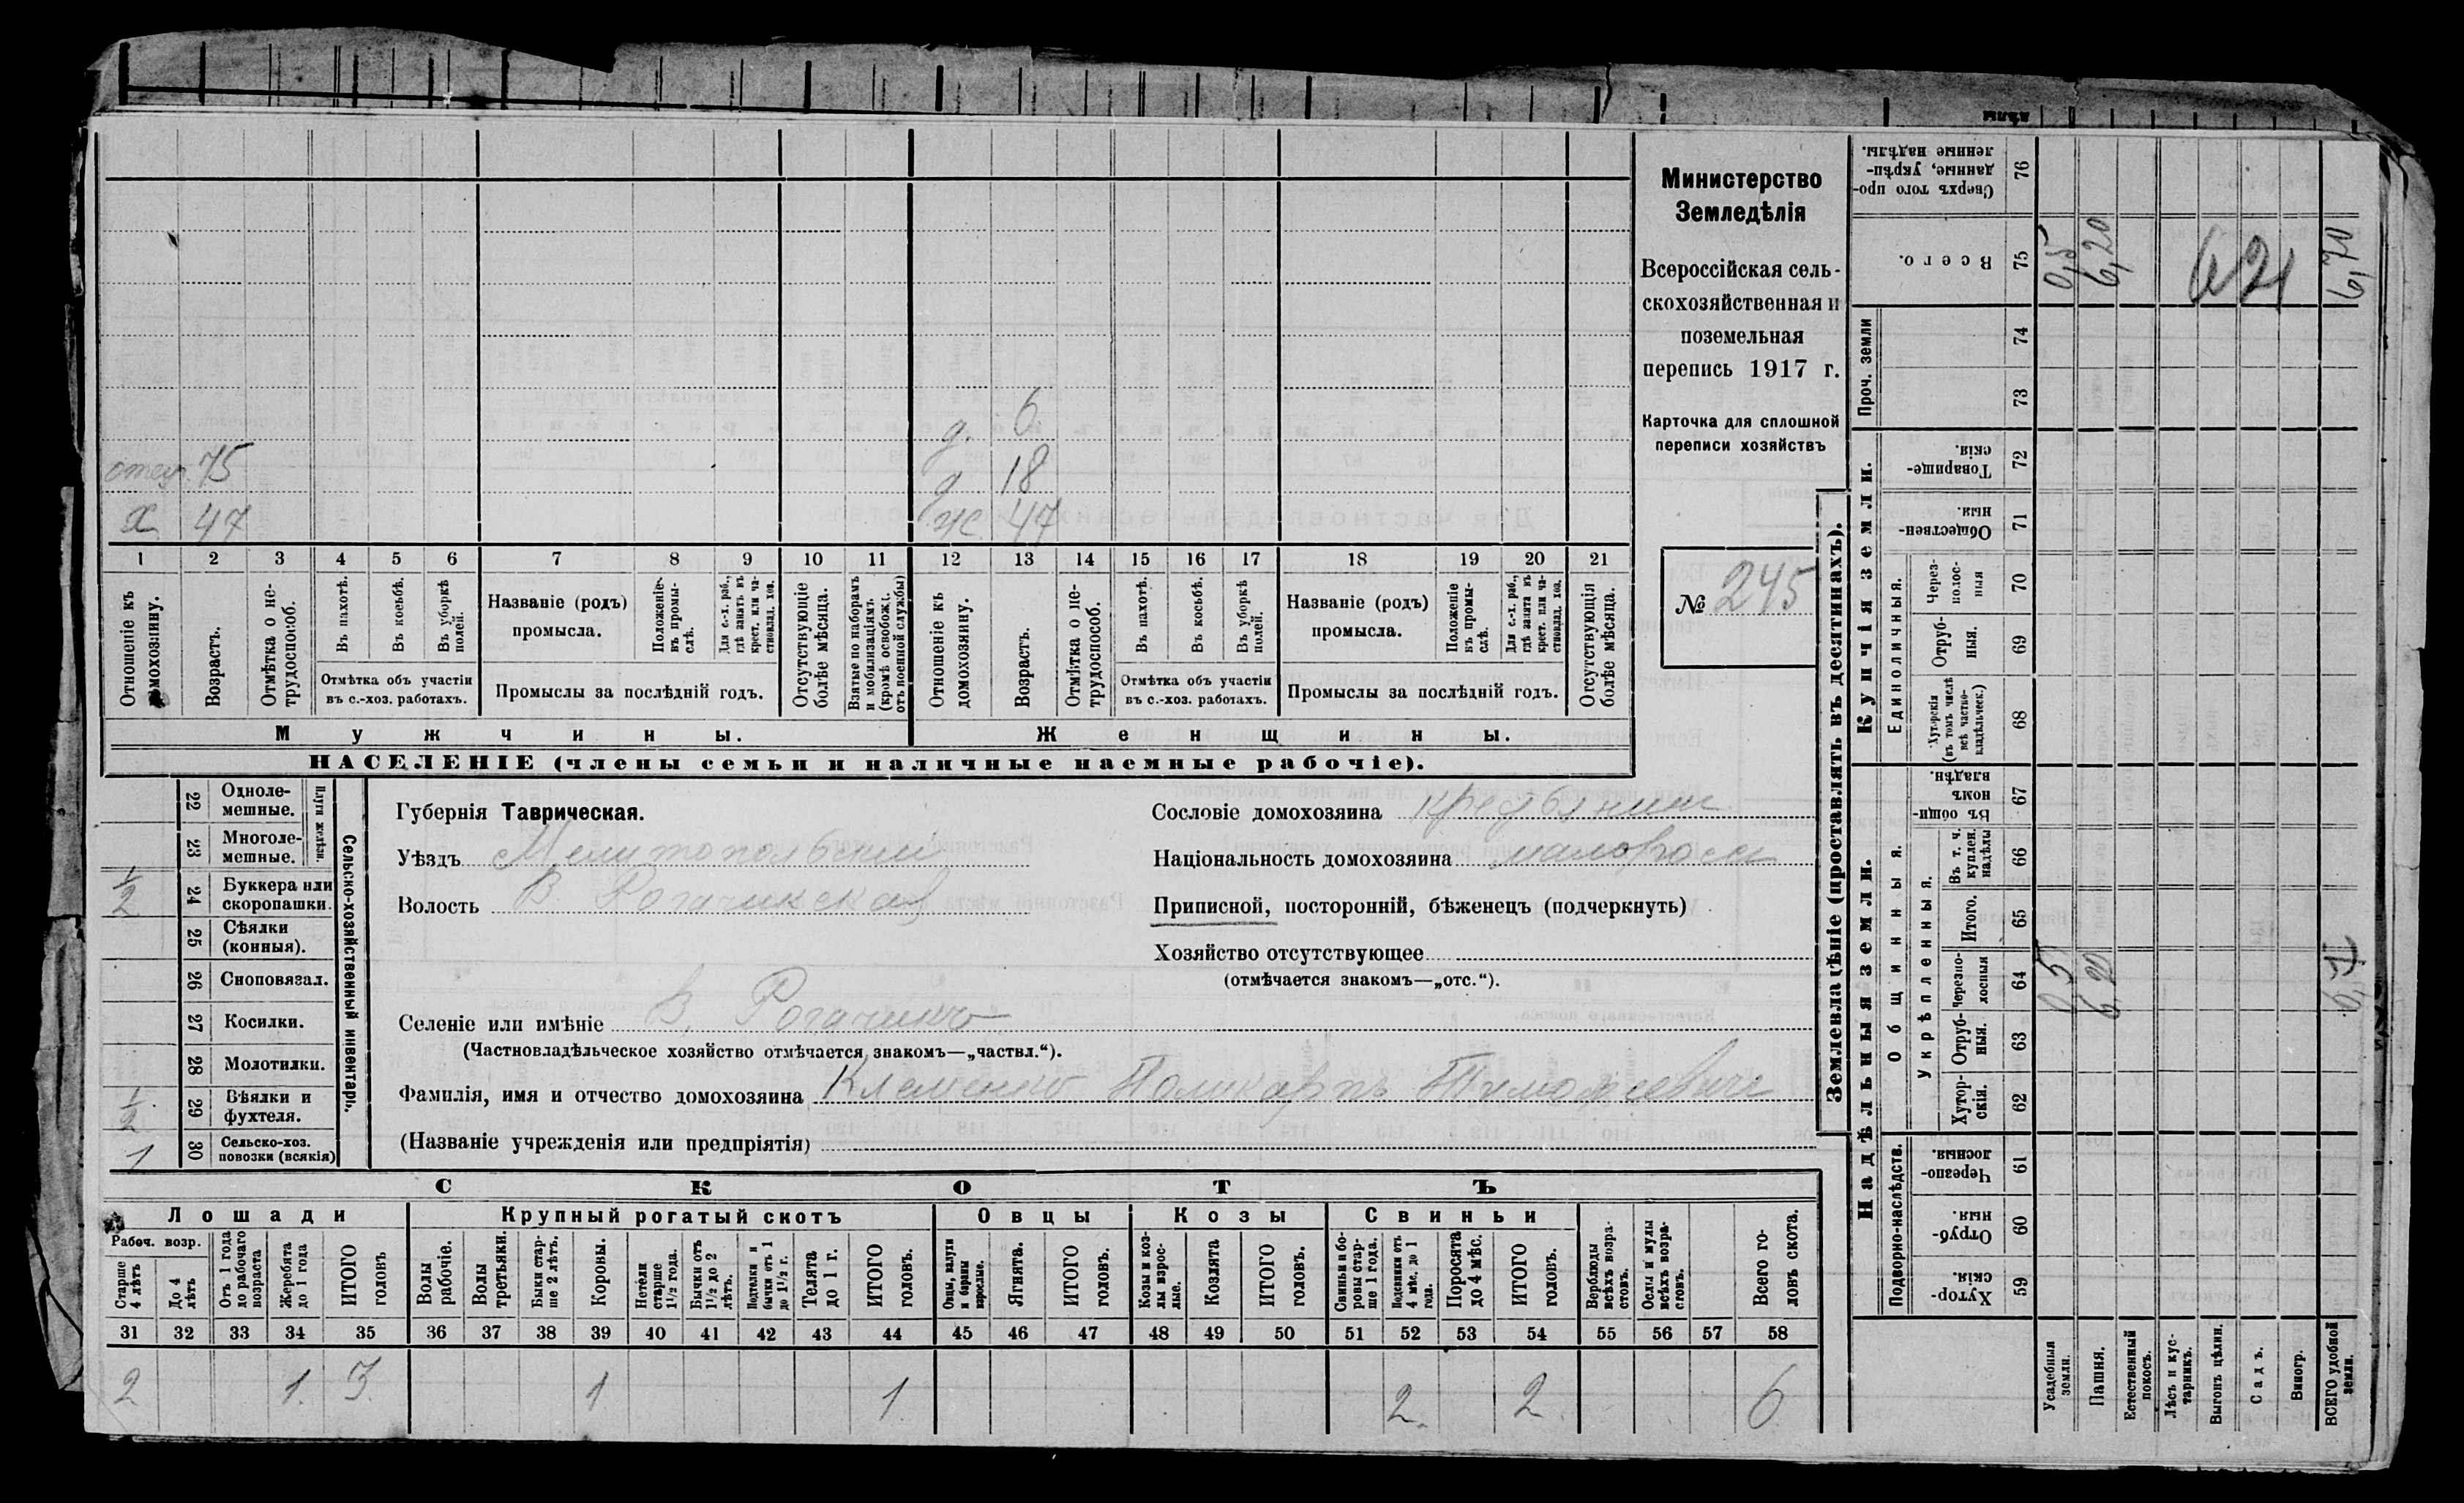 Министерство
Земледѣлія
Всероссійская сель-
скохозяйственная и
поземельная
перепись 1917 г.
Карточка для сплошной
переписи хозяйствъ
№ 245
д. 6
отец 75
д 18
х 47
ж 47
1 2 3 4 5 6 7 8 9 10 11 12 13 14 15 16 17 18 19 20 21
Отношеніе къ домохозяину.
Возрастъ.
Отмѣтка о не-
трудоспособ.
Въ пахотѣ.
Въ косьбѣ.
Въ уборкѣ
полей.
Отмѣтка объ участіи
въ с.-хоз. работахъ.
Названіе (родъ)
промысла.
Положеніе
въ промы-
слѣ.
Для с.-х. раб.,
гдѣ занятъ въ
крест. или ча-
стновлад. хоз.
Промыслы за послѣдній годъ.
Отсутствующіе
болѣе мѣсяца.
Взятые по наборамъ
и мобилизаціямъ
(кромѣ освобожд.
отъ военной службы)
Отношеніе къ
домохозяину.
Возрастъ.
Отмѣтка о не-
трудоспособ.
Въ пахотѣ.
Въ косьбѣ.
Въ уборкѣ
полей.
Отмѣтка объ участіи
въ с.-хоз. работахъ.
Названіе (родъ)
промысла.
Положеніе
въ промы-
слѣ.
Для с.-х. раб.,
гдѣ занята въ
крест. или ча-
стновлад. хоз.
Промыслы за послѣдній годъ.
Отсутствующія
болѣе мѣсяца.
Мужчины.
Женщины.
НАСЕЛЕНІЕ (члены семьи и наличные наемные рабочіе).
Сельско-хозяйственный инвентарь.
Плуги желѣзн.
22 Одноле-
мешные.
23 Многоле-
мешные.
1/2 24 Буккера или
скоропашки.
25 Сѣялки
(конныя).
26 Сноповязал.
27 Косилки.
28 Молотилки.
1/2 29 Вѣялки и
фухтеля.
1 30 Сельско-хоз.
повозки (всякія)
Губернія Таврическая.
Уѣздъ Мелитопольский
Волость В Рогачикская
Селеніе или имѣніе В. Рогачикъ
(Частновладѣльческое хозяйство отмѣчается знакомъ—„частвл.“).
Фамилія, имя и отчество домохозяина Клеменко Поликарпъ Тимофеевичъ
(Названіе учрежденія или предпріятія)
Сословіе домохозяина
Національность домохозяина малоросс
Приписной, посторонній, бѣженецъ (подчеркнуть)
Хозяйство отсутствующее
(отмѣчается знакомъ—„отс.“).
СКОТЪ
Лошади
Крупный рогатый скотъ
Овцы
Козы
Свиньи
Рабоч. возр.
Старше
4 лѣтъ
До 4
лѣтъ
Отъ 1 года
до рабочаго
возраста
Жеребята
до 1 года
ИТОГО
головъ
Волы
рабочіе.
Волы
третьяки.
Быки стар-
ше 2 лѣтъ.
Коровы.
Нетели
старше
1½ года.
Бычки отъ
1½ до 2
лѣтъ.
Подтелки и
бычки отъ 1
до 1½ г.
Телята
до 1 г.
ИТОГО
головъ.
Овцы, валухи
и бараны
взрослые.
Ягнята.
ИТОГО
головъ.
Козы и коз-
лы взрос-
лые.
Козлята
ИТОГО
головъ.
Свиньи и бо-
ровы стар-
ше 1 года.
Подсвинки отъ
4 мѣс. до 1
года.
Поросята
до 4 мѣс.
ИТОГО
головъ.
Верблюды
всѣхъ возра-
стовъ.
Ослы и мулы
всѣхъ возра-
стовъ.
Всего го-
ловъ скота.
31 32 33 34 35 36 37 38 39 40 41 42 43 44 45 46 47 48 49 50 51 52 53 54 55 56 57 58
2 1. 3 1 1 2. 2 6
Землевладѣніе (проставлять въ десятинахъ).
Купчія земли.
Надѣльныя земли.
Сверхъ того про-
данные, укрѣп-
ленные надѣлы.
76
Всего.
75 0,5 6,20 621 6,70
Проч. земли
74
73
Товарище-
скія.
72
Обществен-
ныя.
71
Единоличныя.
Через-
полос-
ныя
70
Отруб-
ныя.
69
Хуторскія
(въ томъ числѣ
всѣ частно-
владѣльческ.)
68
Общинныя.
Въ общи-
номъ
владѣн.
67
Укрѣпленныя.
Въ т. ч.
куплен.
надѣлы
66
Итого.
65
Черезпо-
лосныя
64 0,5 6,20
Отруб-
ныя.
63
Хутор-
скія.
62
Подворно-наслѣдств.
Черезпо-
лосныя.
61
Отруб-
ныя.
60
Хутор-
скія.
59
Усадебныя
земли.
Пашня.
Естественный
покосъ.
Лѣсъ и кус-
тарникъ.
Выгонъ цѣлин.
Садъ.
Виногр.
ВСЕГО удобной
земли.